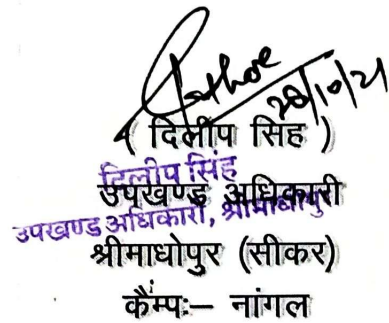 28/10/21
( दिलीप सिंह )
दिलीप सिंह
उपखण्ड अधिकारी
उपखण्ड अधिकारी, श्रीमाधोपुर
श्रीमाधोपुर (सीकर)
कैंम्पः– नांगल